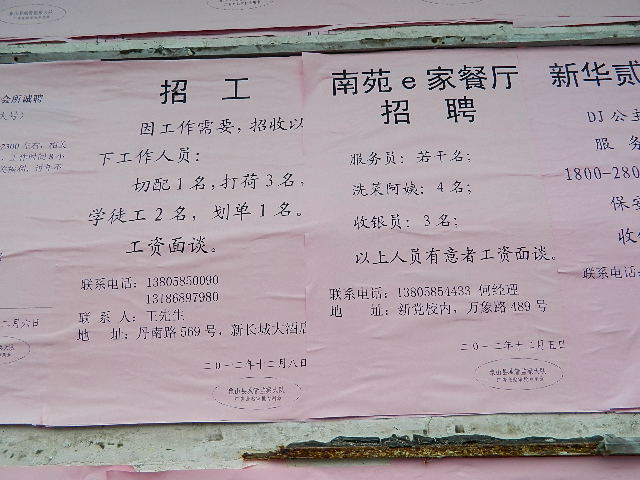 会所诚聘
招 工
因工作需要，招收以
下工作人员：
切配1名，打荷3名，
学徒工2名，划单1名。
工资面谈。
联系电话：13805850090
13186897980
联 系 人：王先生
地 址：丹南路569号，新长城大酒店
二〇一二年十二月八日
南苑e家餐厅
招 聘
服务员：若干名；
洗菜阿姨：4名；
收银员：3名；
以上人员有意者工资面谈。
联系电话：13805854433 何经理
地 址：新党校内，万象路489号
二〇一二年十二月五日
新华贰
DJ公主
服务
1800-280
保安
收银
联系电话
二月六日